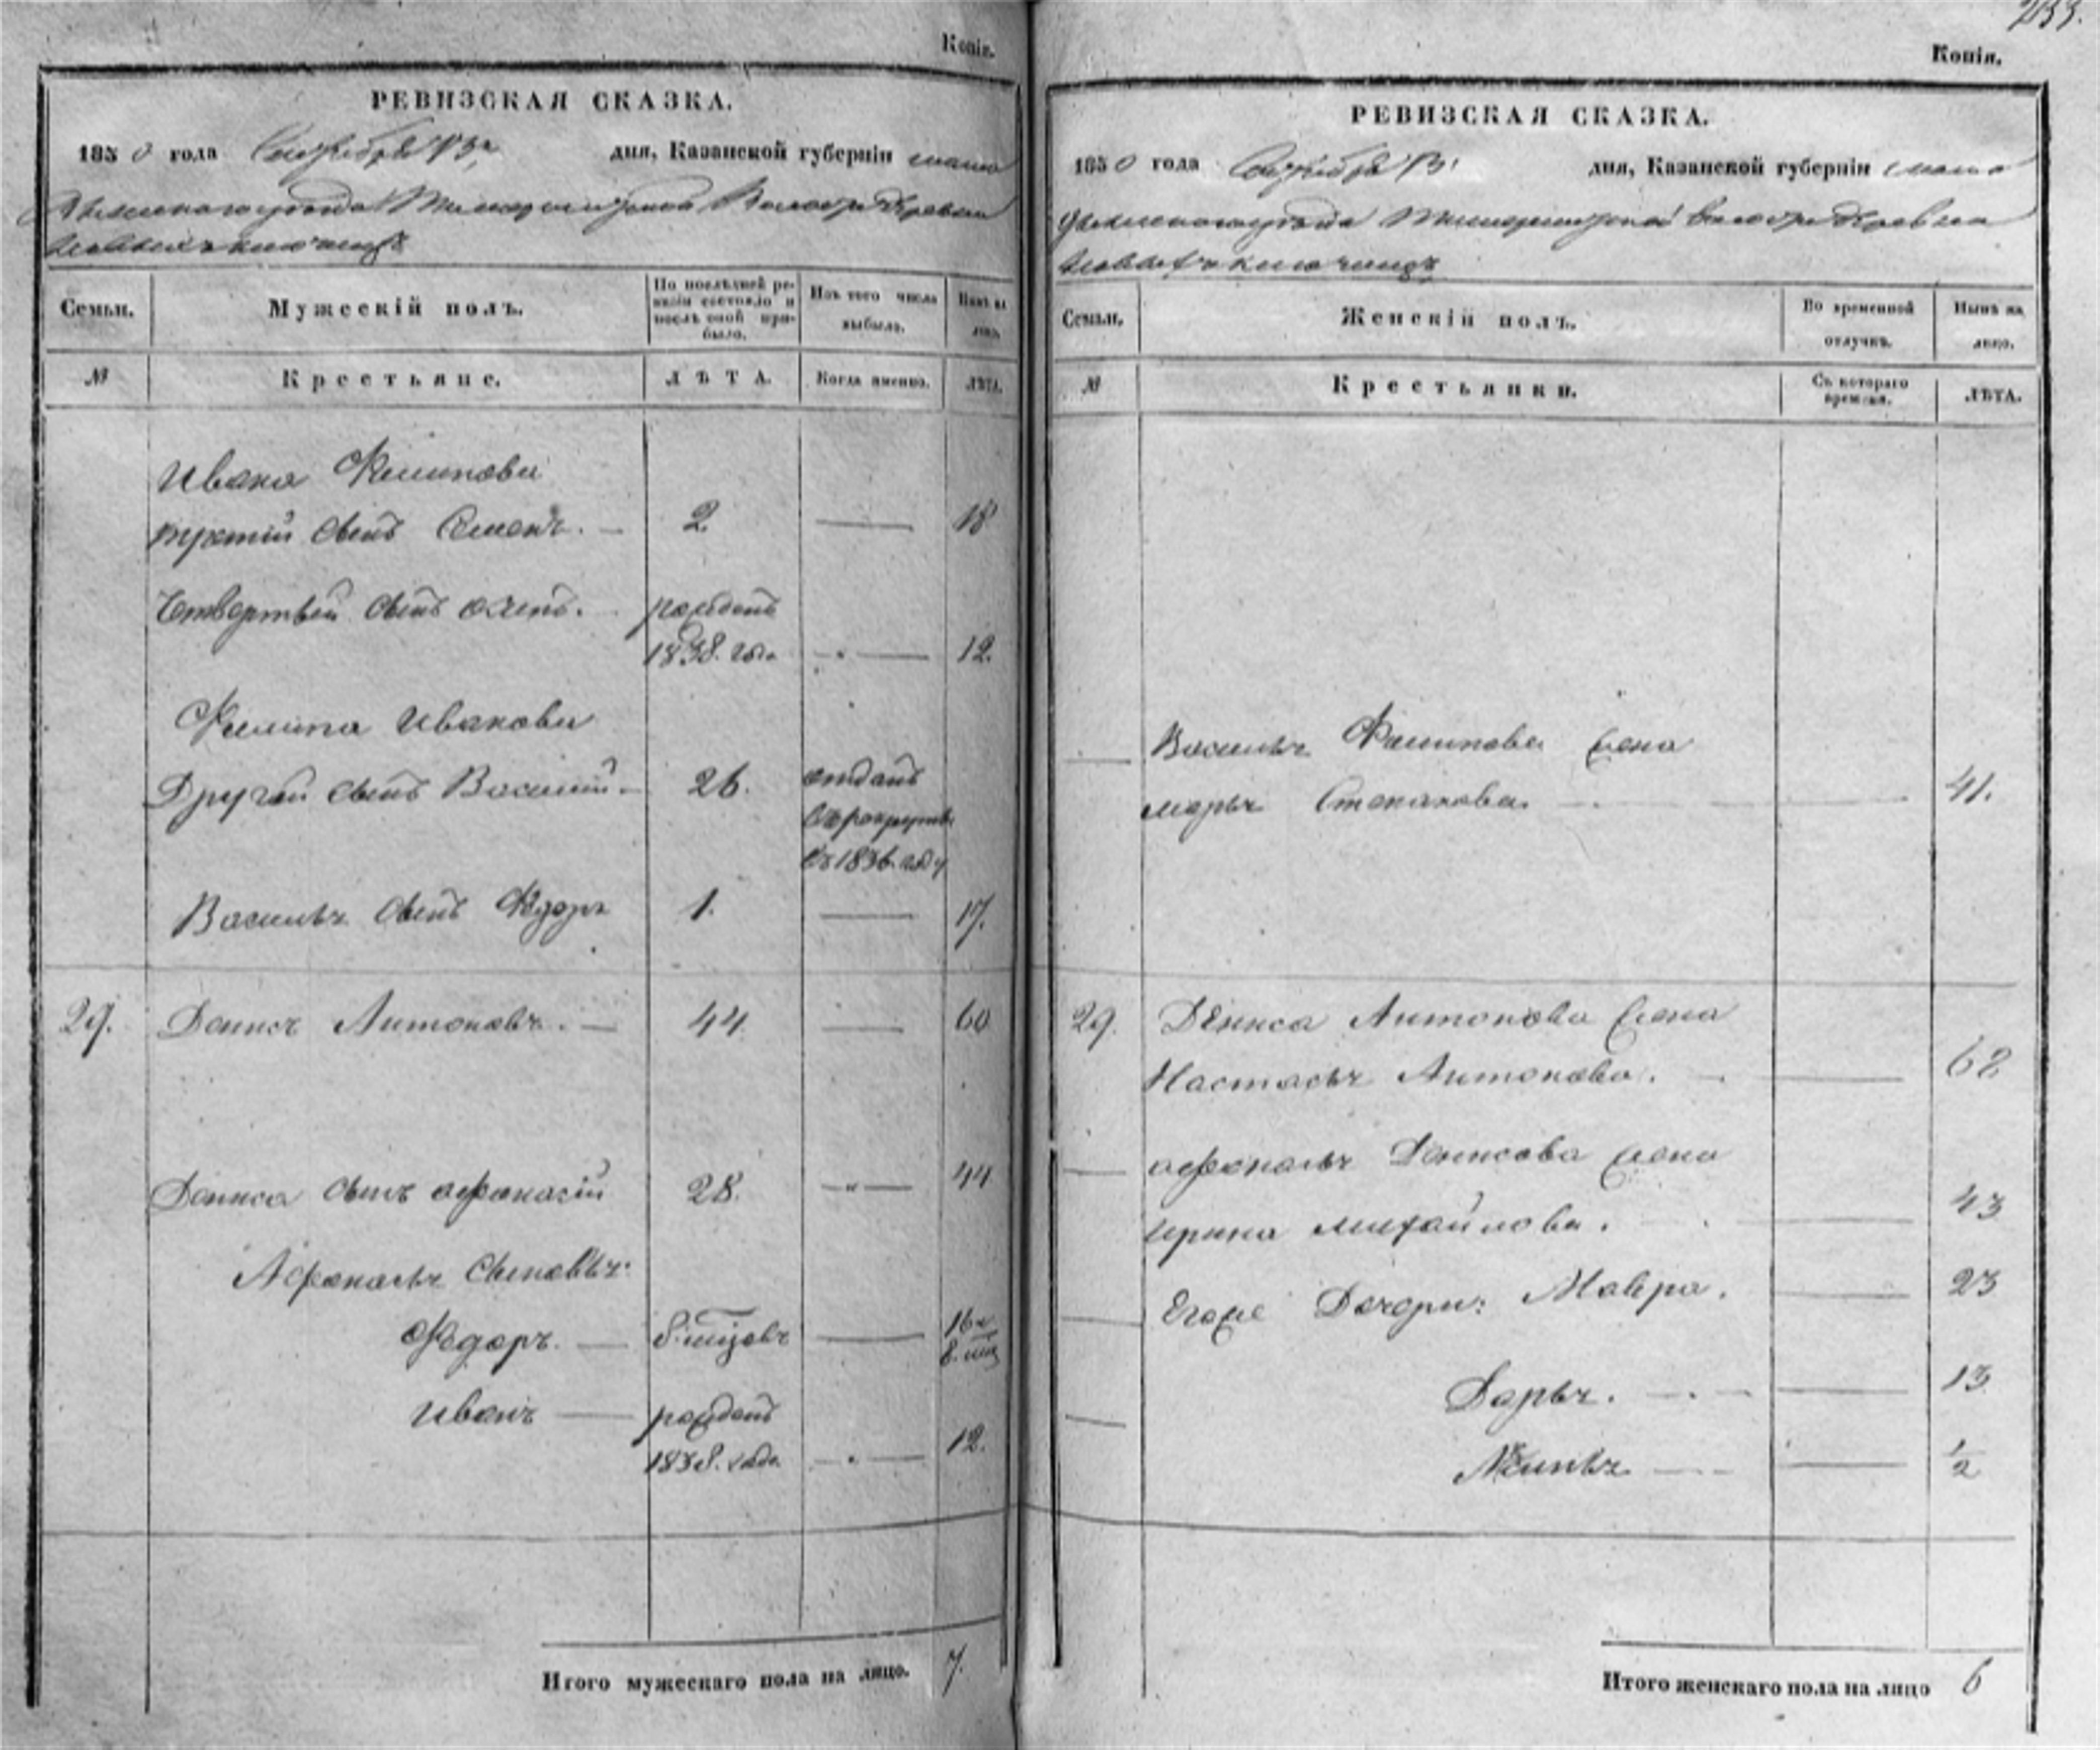 Копія.
РЕВИЗСКАЯ СКАЗКА.
1850 года Сентября 13 дня, Казанской губерніи мама
дышскаго уѣзда волости Деревни
Новыхъ
Семьи.
Мужескій полъ.
По послѣдней ре-
визіи состояло и
послѣ оной при-
было.
Изъ того числа
выбыло.
Нынѣ на
лицо.
№
Крестьяне.
ЛѢТА.
Когда именно.
ЛѢТА.
Ивана Филипова
третій сынъ Семенъ. — 2. — 18
Четвертый сынъ — рожденъ
1838. года — 12.
Филипа Иванова
Другой сынъ Василий — 26. отданъ
в рекруты
въ 1836. году
Василья сынъ Федоръ 1. — 17.
29. Денисъ Антоновъ. — 44. — 60
Дениса сынъ Афанасій 28. — 44
Афанасья сыновья:
Федоръ. — 8. — 16 и
8.
Иванъ — рожденъ
1838. года — 12.
Итого мужескаго пола на лицо. 7.
233.
Копія.
РЕВИЗСКАЯ СКАЗКА.
1850 года Сентября 13 дня, Казанской губерніи мама
дышскаго уѣзда волости Деревни
Новыхъ
Семьи.
Женскій полъ.
Во временной
отлучкѣ.
Нынѣ на
лицо.
№
Крестьянки.
Съ котораго
времени.
ЛѢТА.
— Василья Филипова жена
Марья Степанова. — 41.
29. Дениса Антонова жена
Настасья Антонова. — 62
— Афанасья Денисова жена
Ирина Михайлова. — 43
— Егоже Дочери: Мавра. — 23
— Дарья. — 13
— ½
Итого женскаго пола на лицо 6